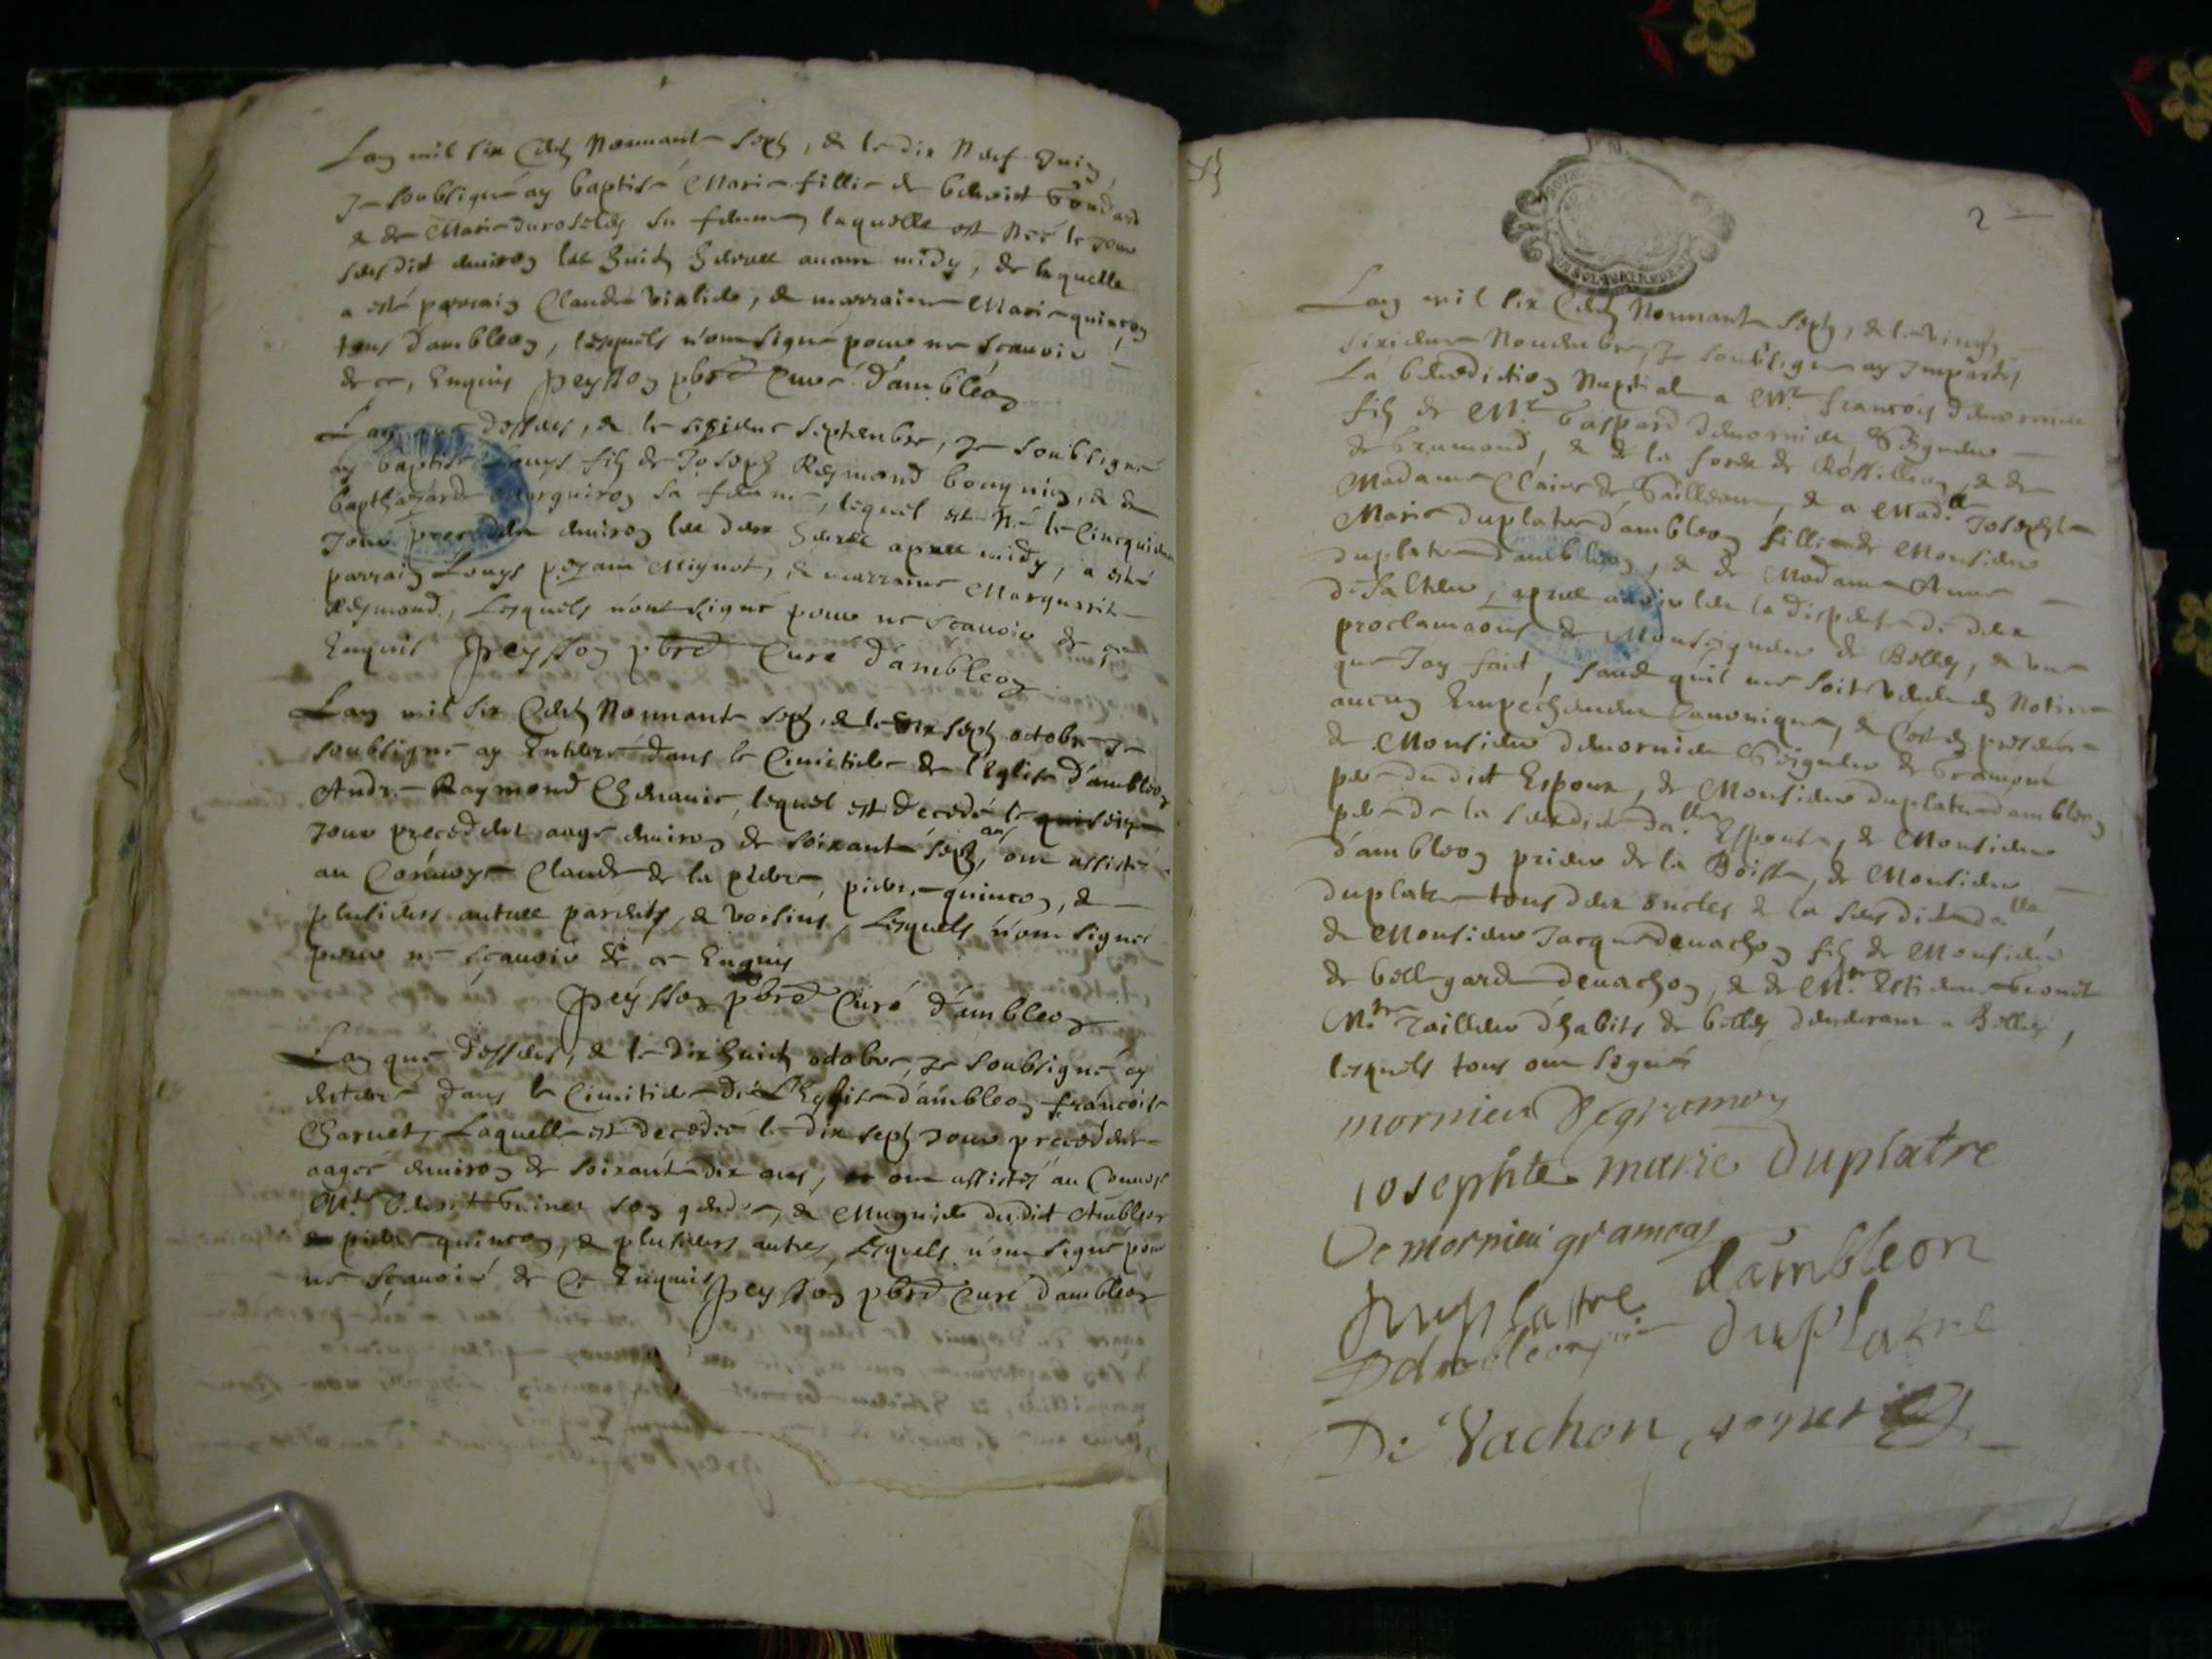 Lan mil six Cents Nonnante sept, & le dix Neuf Juin,
Je soubsigné ay baptisé Marie fillie de benoict
& de Marie duroseley sa femme, laquelle est Née le jour
susdict environ les huict heures avant midy, de laquelle
a esté parrain Claude vialide, & marraine Marie quincon
tous d'ambleon, lesquels n'ont signé pour ne scavoir
de ce, Enquis peysson pbre Curé d'ambleon
Lan que dessus, & le sixieme septembre, Je soubsigné
ay baptisé Louys filz de Joseph Reymond bouynin, & de
sa femme, lequel est Né le Cincquieme
Jour precedent environ les deux heures apres midy, a esté
parrain Louys Mignot, & marraine Marguerite
Reymond, Lesquels n'ont signé pour ne scavoir de ce
Enquis peysson pbre Curé d'ambleon
Lan mil six Cents Nonnante sept, & le dix sept octobre Je
soubsigné ay Enterré dans le Cimitiere de l'Eglise d'ambleon
André Raymond Chenavie, lequel est decedé le
Jour precedent aagé environ de soixante sept ans, ont assisté
au Convoye Claude de la pierre, pierre quincon, &
plusieurs autres parents, & voisins, Lesquels n'ont signé
pour ne scavoir de ce Enquis
peysson pbre Curé d'ambleon
Lan que dessus, & le dix huict octobre, Je soubsigné ay
enterré dans le Cimitiere de L'Eglise d'ambleon françoise
Charvet, Laquelle est decedée le dix sept Jour precedent
aagée environ de soixante dix ans, ont assistés au Convoye
Mre benoit son gendre, & dudict Ambleon
& pierre quincon, & plusieurs autres, Lesquels n'ont signé pour
ne scavoir de Ce Enquis peysson pbre Curé d'ambleon
2
Lan mil six Cents Nonnante sept, & le vingt
sixieme Novembre, Je soubsigné ay Imparty
La benediction Nuptiale a Mre françois demornieu
filz de Mre Gaspard demornieu Seigneur
de Gramond, & de la forest de Rossillion, & de
Madame Claire de Gailleaume, & a Madlle Josephte
Marie duplatre d'ambleon fillie de Monsieur
duplatre d'ambleon, & de Madame Anne
disalteur, apres avoir la dispense de deux
proclamaons de Monseigneur de Belley, & une
que Jay fait, sans qu'il me soit venu en Notice
aucun Empechement Canonique, & C'est en presence
de Monsieur demornieu Seigneur de Gramond
pere dudict Espoux, de Monsieur duplatre d'ambleon
pere de la susdicte dalle Espouse, de Monsieur
d'ambleon prieur de la Boisse, de Monsieur
duplatre tous deux oncles de la susdicte dalle,
de Monsieur Jacques devachon filz de Monsieur
de bellegarde devachon, & de Mre Estienne
Mtre Tailleur d'habits de belley demeurant a Belley,
lesquels tous ont signés
mornieu De gramon
iosephte marie Duplatre
De mornieu gramon
Duplastre dambleon
Dambleon prieur duplatre
De Vachon